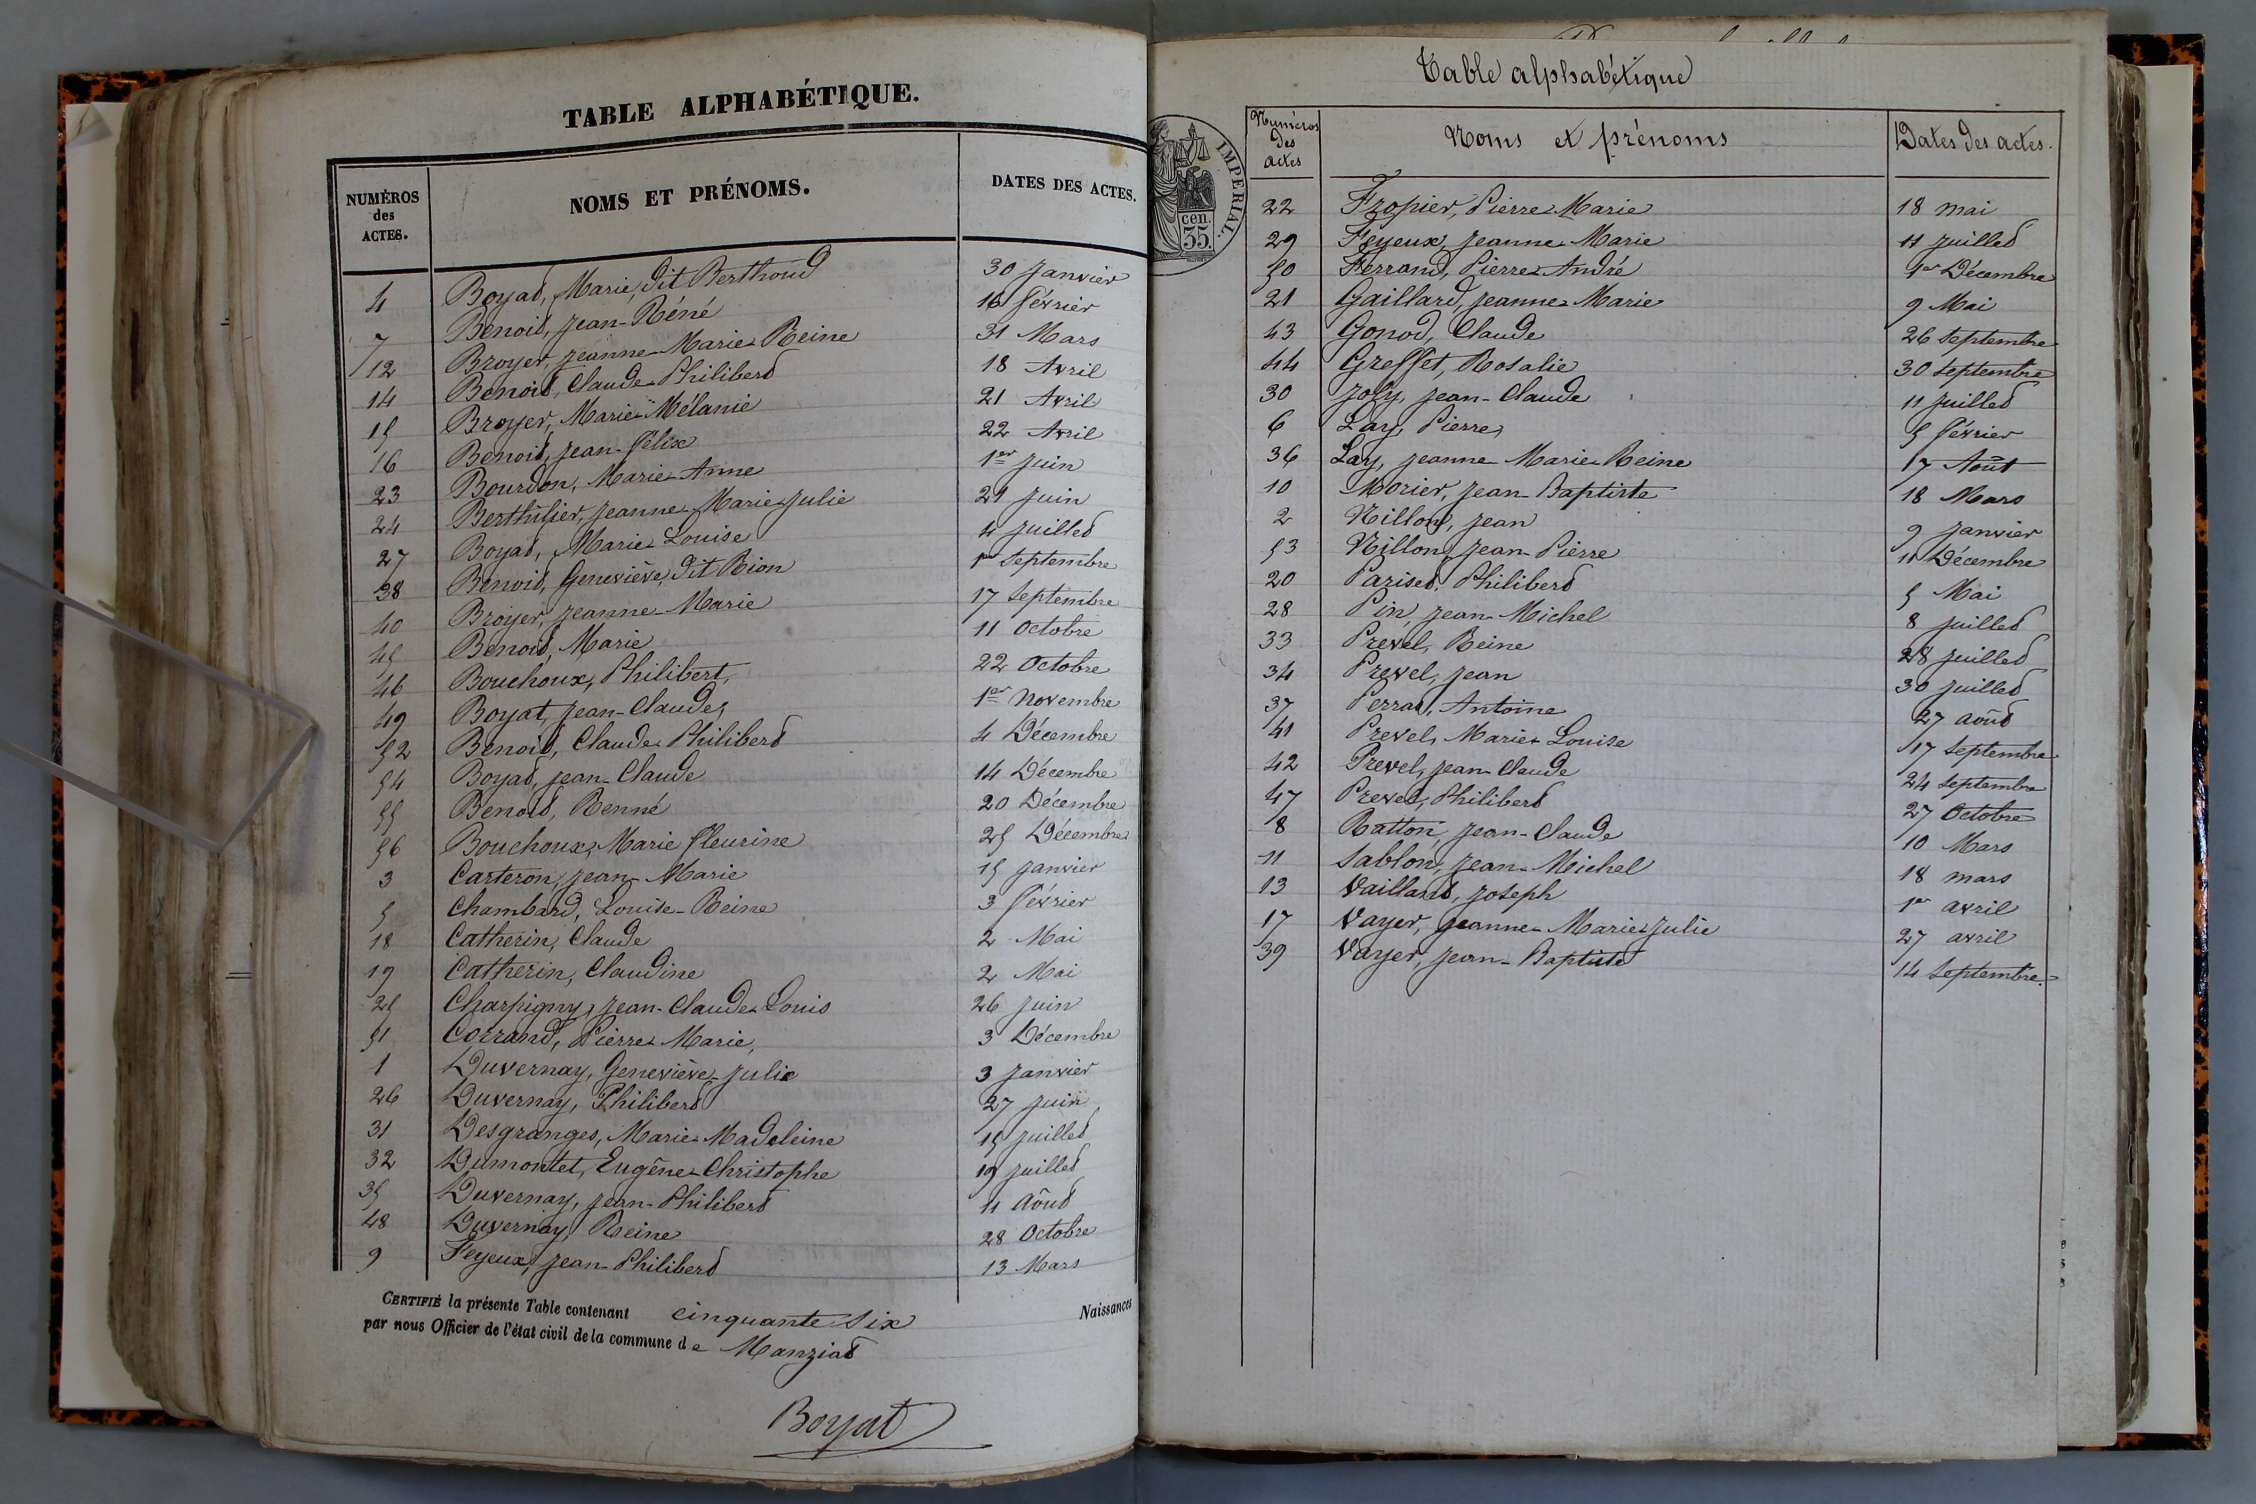 TABLE ALPHABÉTIQUE.
NUMÉROS des ACTES. NOMS ET PRÉNOMS. DATES DES ACTES.
4 Boyat, Marie, dit Berthoud 30 janvier
7 Benoit, jean-Réné 16 février
12 Broyer, jeanne-Marie-Reine 31 Mars
14 Benoit, Claude-Philibert 18 Avril
15 Broyer, Marie-Mélanie 21 Avril
16 Benoit, jean-félix 22 Avril
23 Bourdon, Marie-Anne 1er juin
24 Berthilier, jeanne-Marie-julie 21 juin
27 Boyat, Marie-Louise 4 juillet
38 Benoit, Geneviève, dit Rion 1er Septembre
40 Broyer, jeanne-Marie 17 Septembre
45 Benoit, Marie 11 Octobre
46 Bouchoux, Philibert, 22 Octobre
49 Boyat, jean-Claude, 1er Novembre
52 Benoit, Claude-Philibert 4 Décembre
54 Boyat, jean-Claude 14 Décembre
55 Benoit, Renné 20 Décembre
56 Bouchoux, Marie fleurine 25 Décembre
3 Carteron, jean-Marie 15 janvier
5 Chambard, Louise-Reine 3 février
18 Catherin, Claude 2 Mai
19 Catherin, Claudine 2 Mai
25 Charpigny, jean-Claude-Louis 26 juin
51 Corrand, Pierre-Marie, 3 Décembre
1 Duvernay, Geneviève-julie 3 janvier
26 Duvernay, Philibert 27 juin
31 Desgranges, Marie-Madeleine 15 juillet
32 Dumontet, Eugène-Christophe 19 juillet
35 Duvernay, jean-Philibert 11 Août
48 Duvernay, Reine 28 Octobre
9 Feyeux, jean-Philibert 13 Mars
CERTIFIÉ la présente Table contenant cinquante six Naissances
par nous Officier de l'état civil de la commune de Manziat
Boyat
Table alphabétique
IMPERIAL.
cen.
35.
Numéros des actes Noms et prénoms Dates des actes.
22 Fropier, Pierre-Marie 18 mai
29 Feyeux, jeanne-Marie 11 juillet
50 Ferrand, Pierre-André 1er Décembre
21 Gaillard, jeanne-Marie 9 Mai
43 Gonod, Claude 26 Septembre
44 Greffet, Rosalie 30 Septembre
30 Joly, jean-Claude 11 juillet
6 Lay, Pierre, 5 février
36 Lay, jeanne-Marie-Reine 17 Août
10 Morier, jean-Baptiste 18 Mars
2 Nillon, jean 9 janvier
53 Nillon, jean-Pierre 11 Décembre
20 Pariset, Philibert 5 Mai
28 Pin, jean-Michel 8 juillet
33 Prevel, Reine 28 juillet
34 Prevel, jean 30 juillet
37 Perrat, Antoine 27 août
41 Prevel, Marie-Louise 17 Septembre
42 Prevel, jean-Claude 24 Septembre
47 Prevel, Philibert 27 Octobre
8 Ratton, jean-Claude 10 Mars
11 Sablon, jean-Michel 18 mars
13 Vaillant, joseph 1er avril
17 Vayer, jeanne-Marie-julie 27 avril
39 Vayer, jean-Baptiste 14 Septembre.